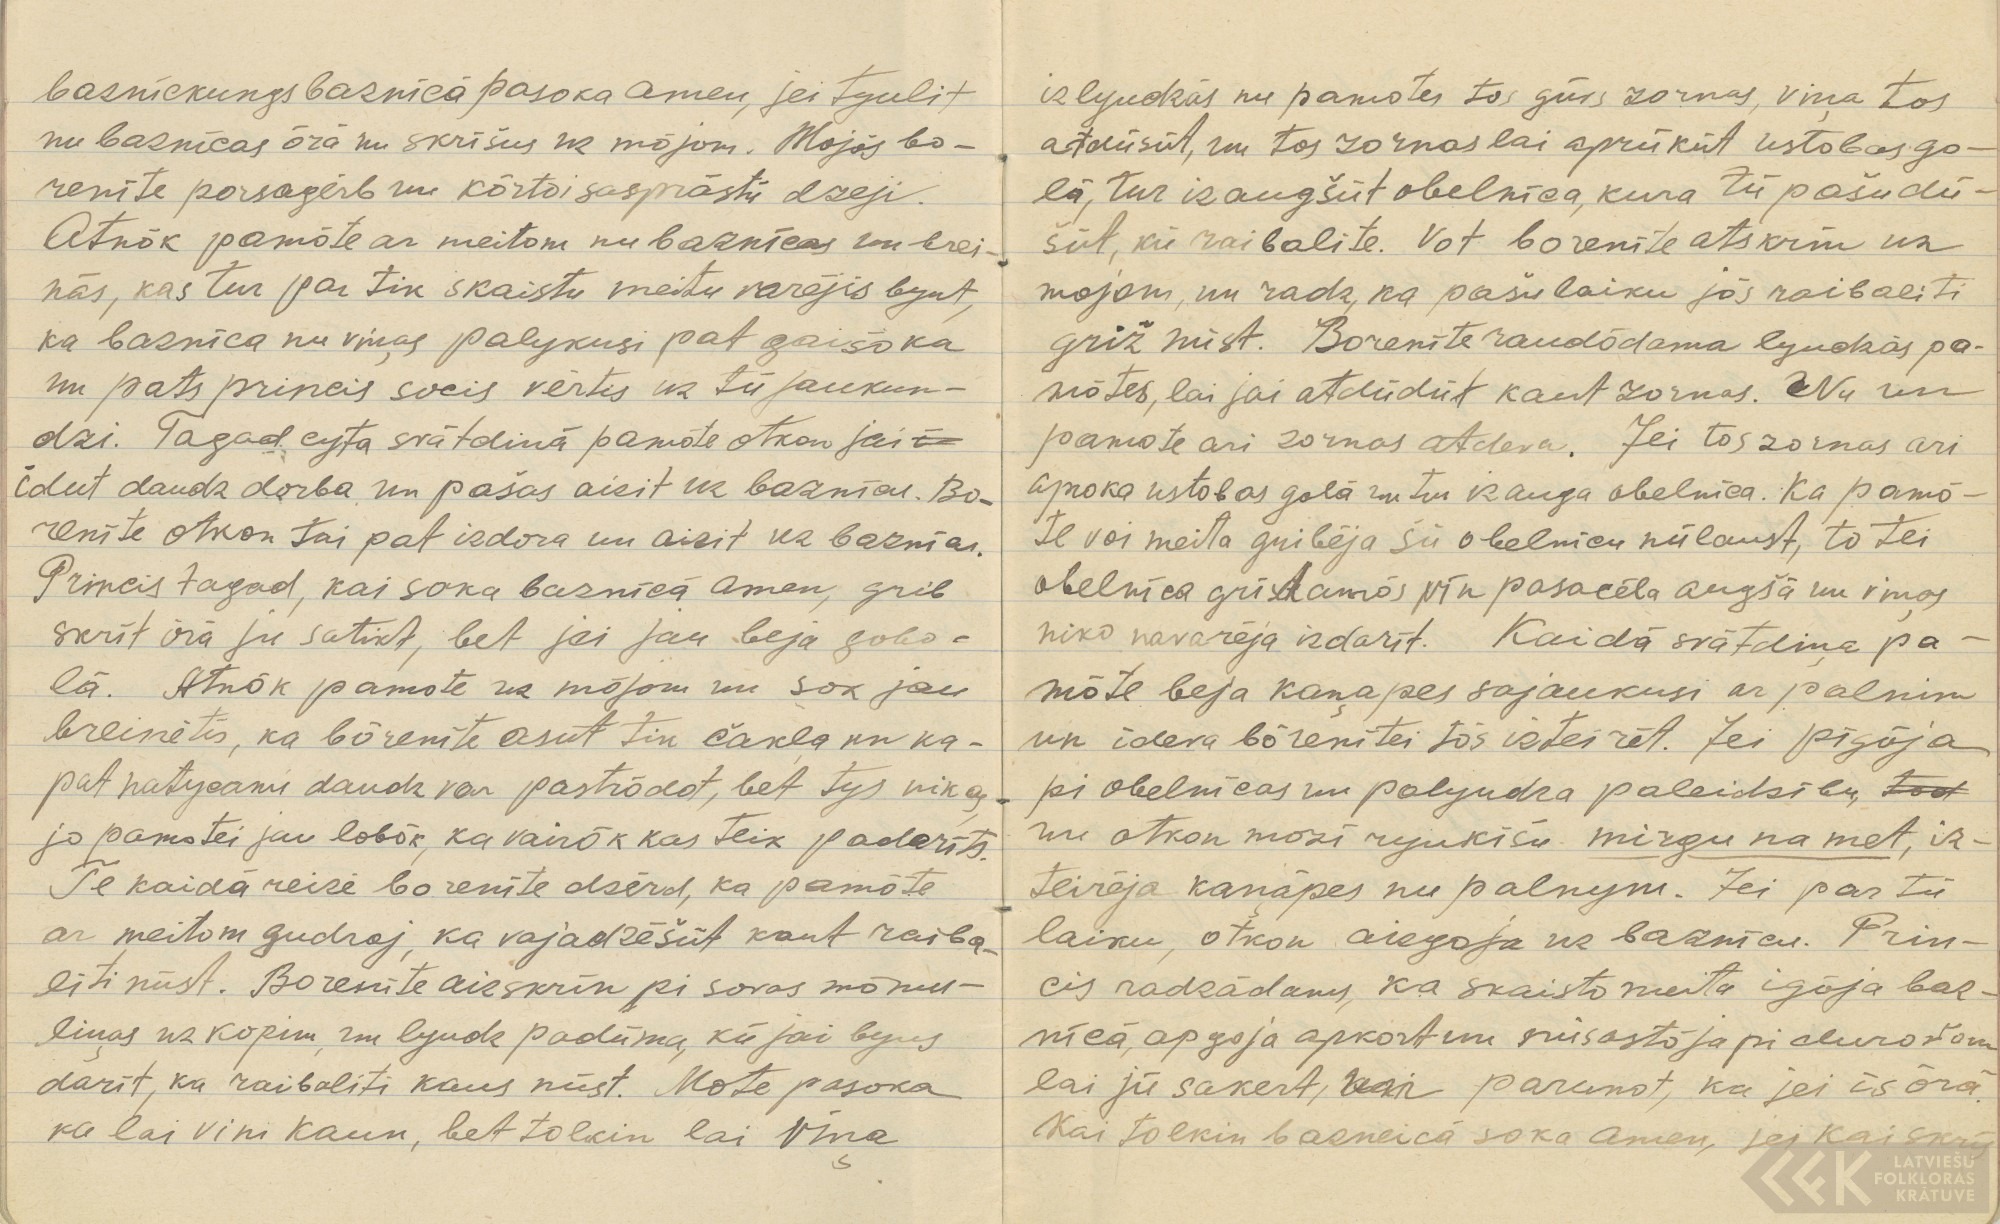 baznickungs baznīcā pasoka amen, jei tyulit
nu baznīcas ōrā nu skrīšus uz mōjom. Mojōs bo-
renīte porsagērb un kōrtoi sasprāstū dzeji.
Atnōk pamōte ar meitom nu baznīcas un brei-
nās, kas tur par tik skaistu meitu varējis byut,
ka baznīca nu viņas palykusi pat gaišōka
un pats princis socis vērtis uz tū jaukun-
dzi. Tagad cyta svātdinā pamōte otkon jai
īdut daudz dorba un pašas aizit uz baznīcu. Bo-
renīte otkon tai pat izdora un aizit uz baznīcu.
Princis tagad, kai soka baznīcā amen, grib
skrīt ōrā ju satikt, bet jei jau beja gobo-
lā. Atnōk pamote uz mōjom un sok jau
breinētis, ka bōrenīte asut tik čakla un ka-
pat natycami daudz var pastrōdot, bet tys nikas,
jo pamotei jau lobōk, ka vairōk kas teik padorīts.
Te kaidā reizē borenīte dzērd, ka pamōte
ar meitom gudroj, ka vajadzēšūt kaut raiba-
liti nūst. Borenīte aizskrin pi sovas mōmu-
liņas uz kopim, un lyudz padūma, kū jai byus
darīt, ka raibaliti kaus nūst. Mote pasoka
ka lai vini kaun, bet tolkin lai viņa
izlyudzās nu pamotes tos gūvs zornas, viņa tos
atdūsūt, un tos zornas lai aprūkūt ustobas go-
lā, tur izaugšūt obelnīca, kura tū pašu dū-
šūt, kū raibalite. Vot borenīte atskrin uz
mojom, un radz, ka pašulaiku jōs raibaliti
griž nūst. Borenīte raudōdama lyudzās pa-
mōtes, lai jai atdūdūt kaut zornas. Nu un
pamote ari zornas atdeva. Jei tos zornas ari
aproka ustobas golā un tur izauga obelnīca. Ka pamō-
te voi meita gribēja šū obelnīcu nūlaust, to tei
obelnīca grīstamōs vīn pasacēla augšā un viņas
niko navarēja izdarīt. Kaidā svātdiņa pa-
mōte beja kaņapes sajaukusi ar palnim
un īdeva bōrenītei tōs izteirēt. Jei pīgōja
pi obelnīcas un palyudza paleidzību,
un otkon mozi ryukīšu mirgu na met, iz-
teirēja kaņāpes nu palnym. Jei par tū
laiku, otkon aizgoja uz baznīcu. Prin-
cis radzādams, ka skaisto meita igōja baz-
nīcā, apgoja apkort un nūsostōja pi durovom
lai jū sakert, vair parunot, ka jei īs ōrā.
Kai tolkin bazneicā soka amen, jej kai skrīs
LATVIEŠU
FOLKLORAS
KRĀTUVE